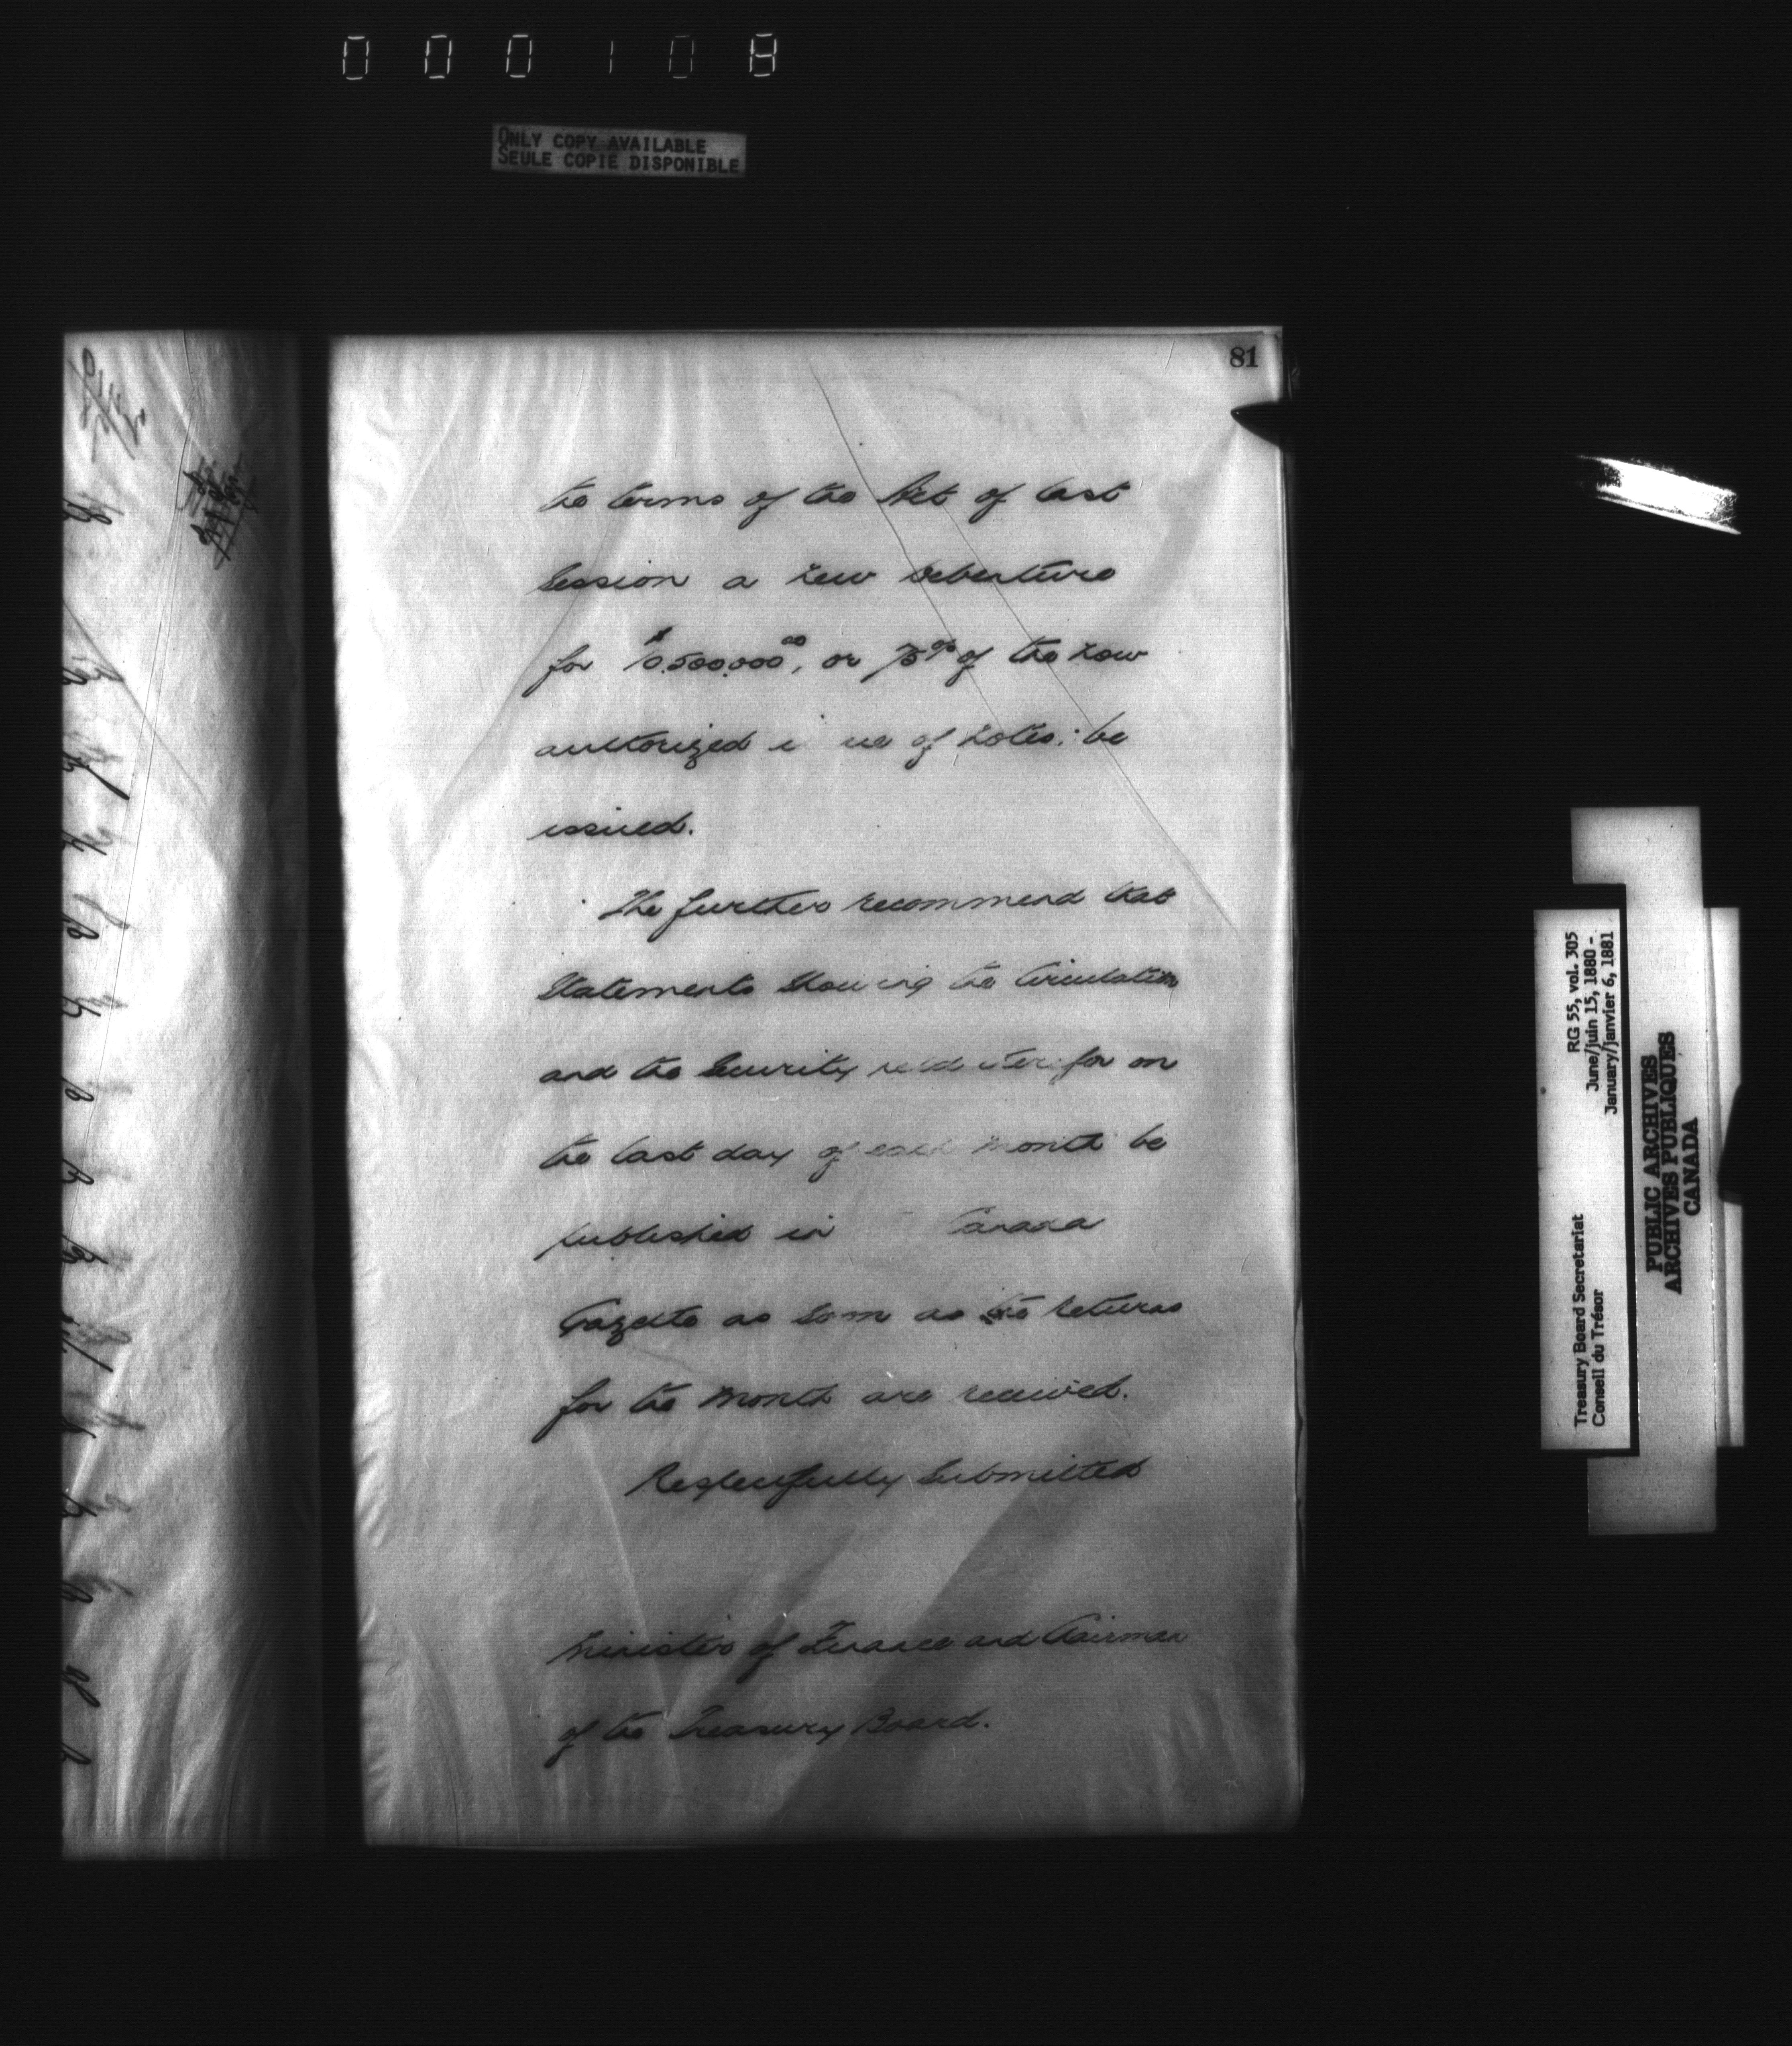 000108
ONLY COPY AVAILABLE
SEULE COPIE DISPONIBLE
81
the terms of the Act of last
Session a new debenture
for $10,500,000.00, or 75% of the now
authorized i ue of notes, be
issued.
The further recommend that
Statements Showing the Circulation
and the Security held therefor on
the last day of each month be
published in Canada
Gazette as soon as the returns
for the month are received.
Respectfully Submitted
Minister of Finance and Chairman
of the Treasury Board.
RG 55, vol. 305
June/juin 15, 1880 -
January/janvier 6, 1881
Treasury Board Secretariat
Conseil du Trésor
PUBLIC ARCHIVES
ARCHIVES PUBLIQUES
CANADA